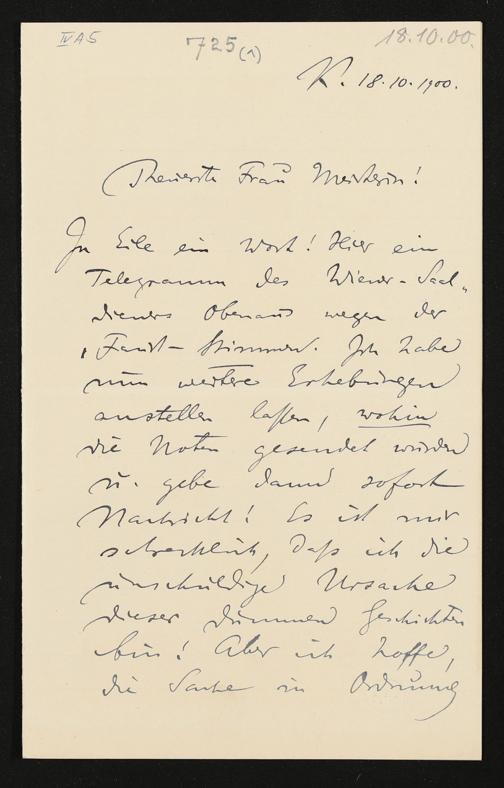 IV A 5
725 (1)
18.10.00.
K. 18.10.1900.
Theuerste Frau Meisterin!
In Eile ein Wort! Hier ein
Telegramm des Wiener-Saal-
dieners Obenaus wegen der
"Faust-Stimmen. Ich habe
nun weitere Erhebungen
anstellen laßen, wohin
die Noten gesendet wurden
u. gebe dann sofort
Nachricht! Es ist mir
schrecklich, daß ich die
unschuldige Ursache
dieser dummen Geschichten
bin! Aber ich hoffe,
die Sache in Ordnung